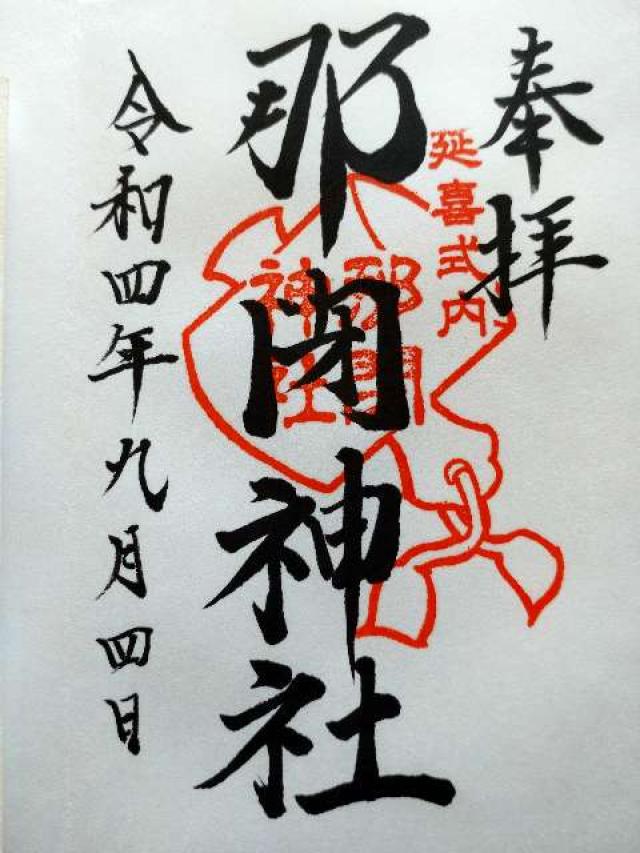 奉拝
延喜式内
那閉神社
那閉神社
令和四年九月四日